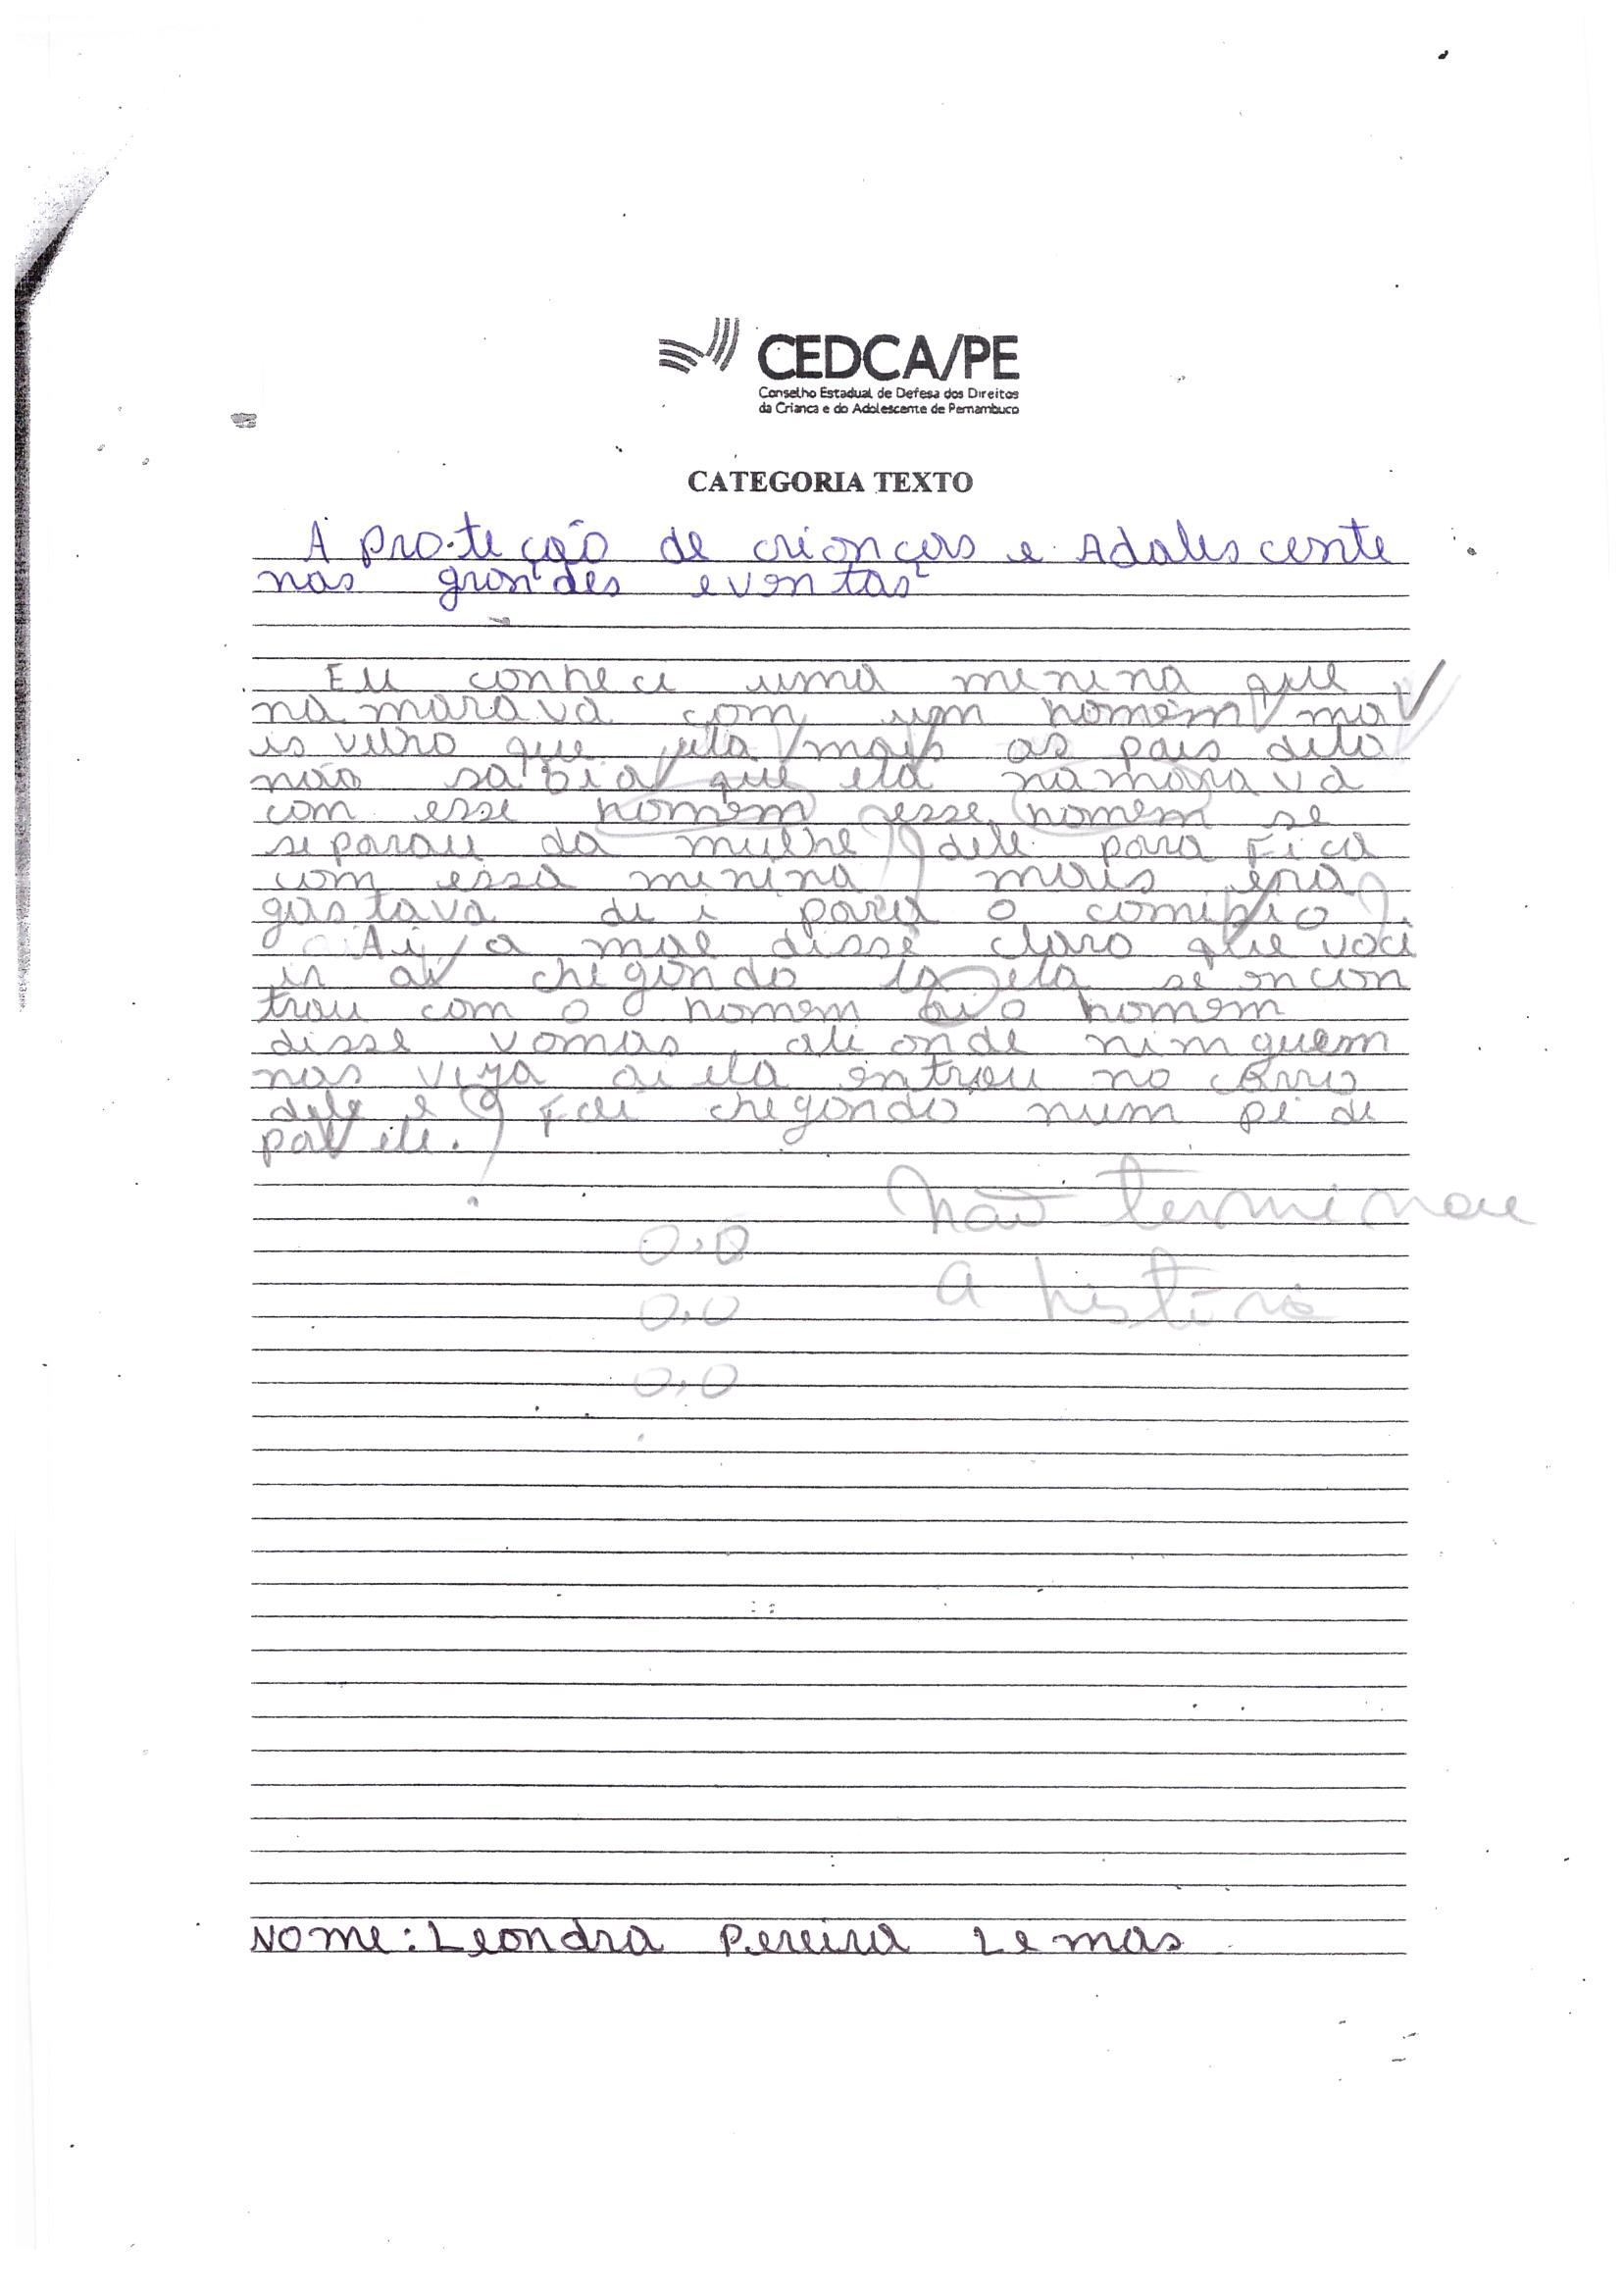 CEDCA/PE
Conselho Estadual de Defesa dos Direitos
da Criança e do Adolescente de Pernambuco
CATEGORIA TEXTO
A proteção de crianças e Adolescente
nos grandes eventos
Eu conheci uma menina que
namorava com um homem ma
is velho que ela mais os pais dela
não sabia que ela namorava
com esse homem esse homem se
separou da mulhe dele para Fica
com essa menina mais
gostava de i para o comisio.
Ai a mãe disse claro que você
ir ai chegondo la ela se encon
trou com o homem ai o homem
disse vomos ali onde nimguem
nos veja ai ela entrou no carro
dele e Foi chegondo num pé de
pau ele.
Não terminou
a história
0,0
0,0
0,0
Nome: Leondra Pereira Lemos